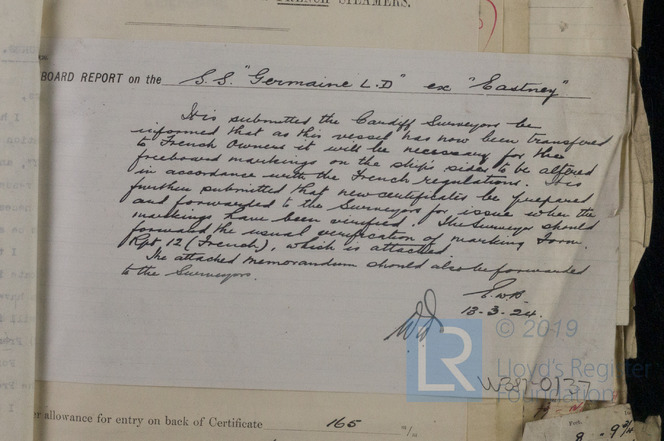 FRENCH STEAMERS.
BOARD REPORT on the S.S. "Germaine L.D" ex "Eastney"
It is submitted the Cardiff Surveyors be
informed that as this vessel has now been transferred
to French Owners it will be necessary for the
freeboard markings on the ship's sides to be altered
in accordance with the French regulations. It is
further submitted that new certificates be prepared
and forwarded to the Surveyors for issue when the
markings have been verified. The Surveyors should
forward the usual verification of marking Form,
Rpt. 12 (French), which is attached.
The attached memorandum should also be forwarded
to the Surveyors.
13-3-24.
© 2019
LR
Lloyd's Register
Foundation
W381-0137
allowance for entry on back of Certificate 165